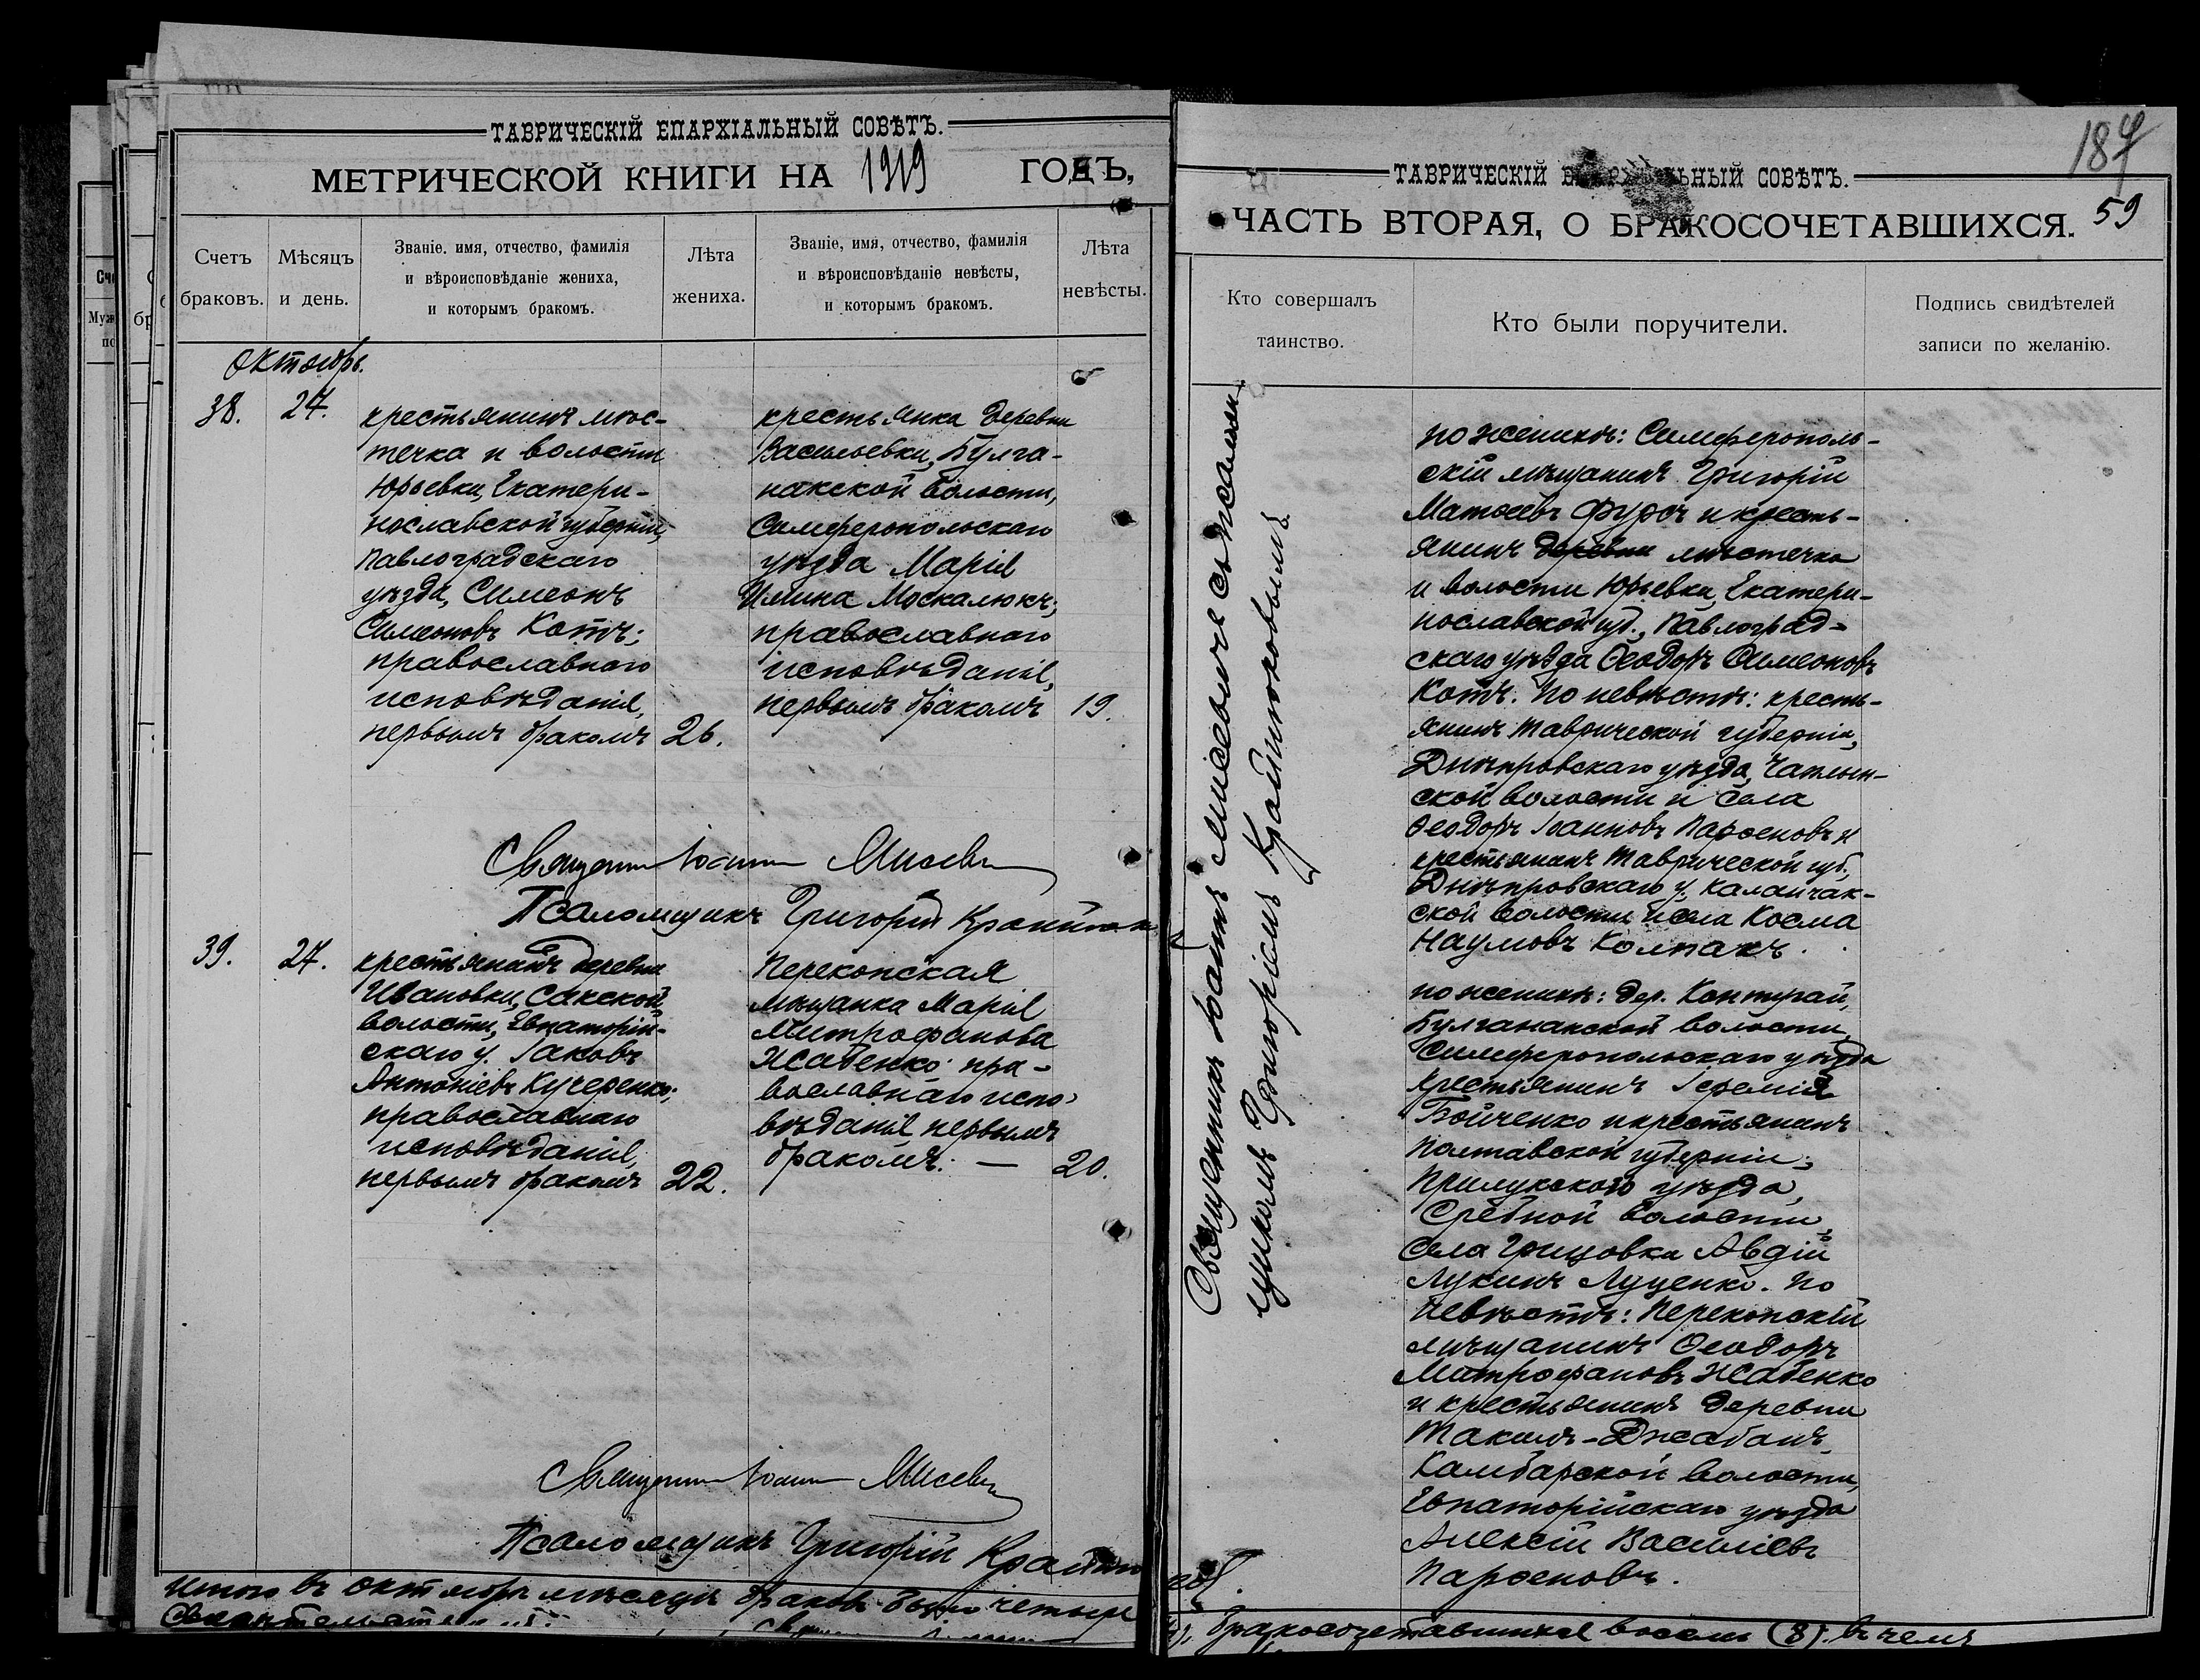 ТАВРИЧЕСКІЙ ЕПАРХІАЛЬНЫЙ СОВѢТЪ.
МЕТРИЧЕСКОЙ КНИГИ НА 1919 ГОДЪ,
Счетъ браковъ.
Мѣсяцъ и день.
Званіе, имя, отчество, фамилія
и вѣроисповѣданіе жениха,
и которымъ бракомъ.
Лѣта жениха.
Званіе, имя, отчество, фамилія
и вѣроисповѣданіе невѣсты,
и которымъ бракомъ.
Лѣта невѣсты.
Октябрь.
38. 27.
крестьянинъ мѣс-
течка и волости
Юрьевки, Екатери-
нославской губерніи,
Павлоградскаго
уѣзда, Симеонъ
Симеоновъ Котъ;
православнаго
исповѣданія,
первымъ бракомъ 26.
крестьянка деревни
Васильевки, Булга-
накской волости,
Симферопольскаго
уѣзда Марія
Ильина Москалюкъ;
православнаго
исповѣданія,
первымъ бракомъ 19.
Священникъ Іоаннъ Мисевичъ
Псаломщикъ Григорій
39. 27.
крестьянинъ деревни
Ивановки, Сакской
волости, Евпаторій-
скаго у. Іаковъ
Антоніевъ Кучеренко;
православнаго
исповѣданія,
первымъ бракомъ 22.
Перекопская
мѣщанка Марія
Митрофанова
Жабенко пра-
вославнаго испо-
вѣданія первымъ
бракомъ. — 20.
Священникъ Іоаннъ Мисевичъ
Псаломщикъ Григорій
Итого въ октябрѣ мѣсяцѣ браковъ было четыре
187
ТАВРИЧЕСКІЙ ЕПАРХІАЛЬНЫЙ СОВѢТЪ.
ЧАСТЬ ВТОРАЯ, О БРАКОСОЧЕТАВШИХСЯ. 59
Кто совершалъ
таинство.
Кто были поручители.
Подпись свидѣтелей
записи по желанію.
Священникъ Іоаннъ Мисевичъ съ псалом-
щикомъ Григоріемъ
по женихѣ: Симферополь-
скій мѣщанинъ Григорій
Матѳеевъ Фурсъ и кресть-
янинъ деревни мѣстечка
и волости Юрьевки, Екатери-
нославской губ., Павлоград-
скаго уѣзда Ѳеодоръ Симеоновъ
Котъ. По невѣстѣ: кресть-
янинъ Таврической губерніи,
Днѣпровскаго уѣзда, Чаплын-
ской волости и села
Ѳеодоръ Іоанновъ Парѳеновъ и
крестьянинъ Таврической губ.,
Днѣпровскаго у. Каланчак-
ской волости и села Косма
Наумовъ Колпакъ.
по женихѣ: дер. Контуган,
Булганакской волости,
Симферопольскаго уѣзда
крестьянинъ Іеремія
Бойченко и крестьянинъ
Полтавской губерніи,
Прилукскаго уѣзда,
Сребной волости,
села Грицовка Авдій
Лукинъ Луценко. По
невѣстѣ: Перекопскій
мѣщанинъ Ѳеодоръ
Митрофановъ Жабенко
и крестьянинъ деревни
Такилъ-Джабанъ
Камбарской волости,
Евпаторійскаго уѣзда
Алексій Василіевъ
Парѳеновъ.
бракосочетавшихся восемь (8). въ чемъ